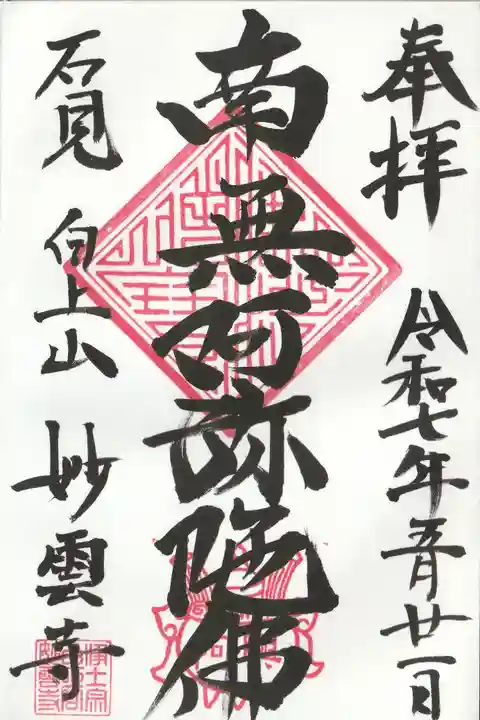 奉拝
令和七年五月廿一日
南無阿弥陀佛
石見 向上山 妙雲寺